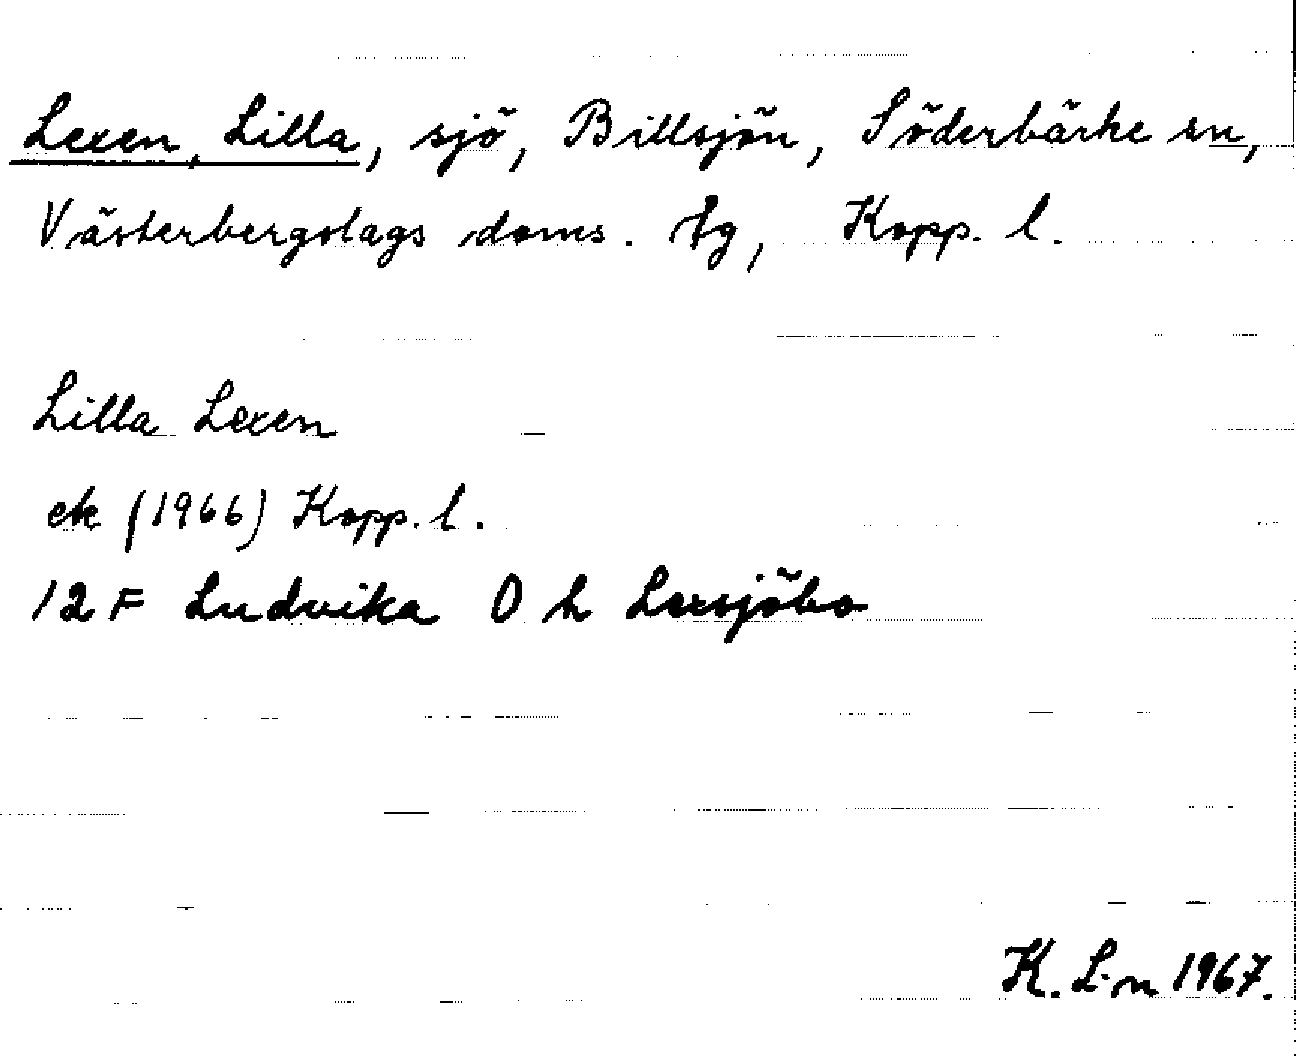 Lexen, Lilla, sjö, Billsjön, Söderbärke sn,
Västerbergslags doms. tg, Kopp. l.
Lilla Lexen
ek (1966) Kopp. l.
12 F Ludvika 0 h Lexsjöbo
K. L-n 1967.